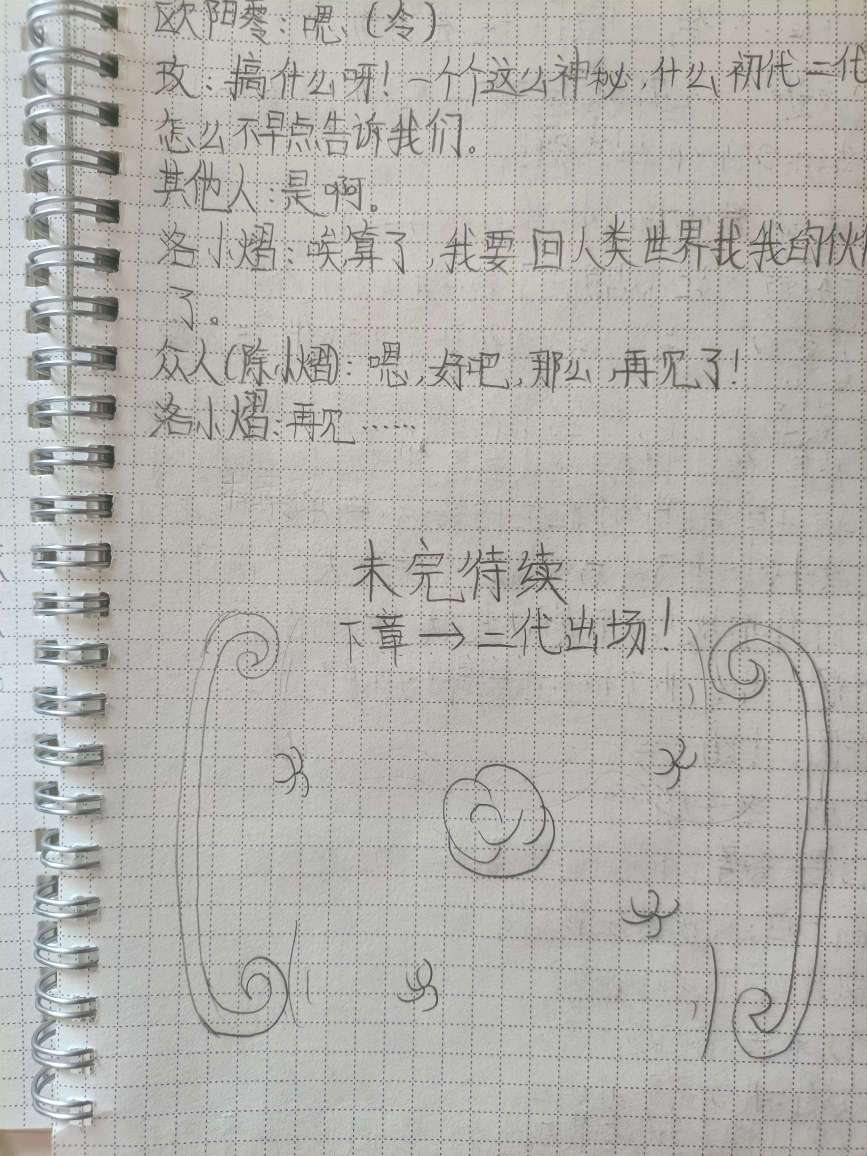 欧阳零：嗯、（冷）
玫：搞什么呀！一个个这么神秘，什么初代二代
怎么不早点告诉我们。
其他人：是啊。
洛小熠：唉算了，我要回人类世界找我的伙
了。
众人（除小熠）：嗯，好吧，那么，再见了！
洛小熠：再见……
未完待续
下章→二代出场！